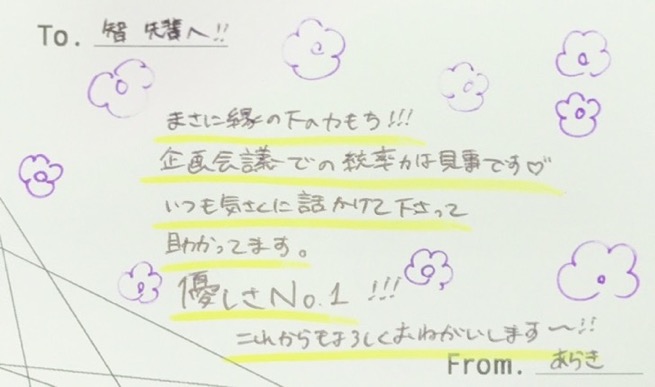 To. 智 先輩へ!!
まさに縁の下の力もち!!!
企画会議での統率力は見事です♡
いつも気さくに話かけて下さって
助かってます。
優しさNo.1 !!!
これからもよろしくおねがいします〜!!
From. あらき